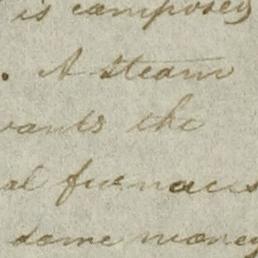 is composed
. A steam
wants the
al furnaces
some money